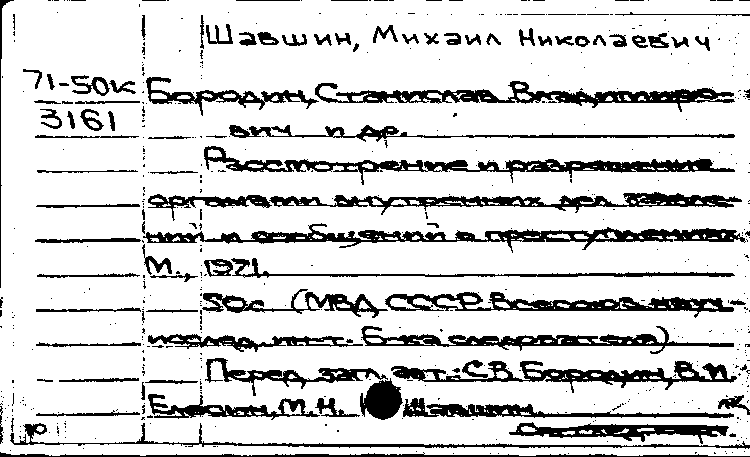 Шавшин, Михаил Николаевич
71-50к Бородин, Станислав Владимиро-
3161 вич и др.
Рассмотрение и разрешение
органами внутренних дел заявле-
ний и сообщений о преступлениях
М., 1971.
50с (МВД СССР. Всесоюз. науч.-
исслед. ин-т. Б-ка следователя)
Перед загл. авт.: С.В. Бородин, В.И.
Елесин, М.Н. Шавшин.